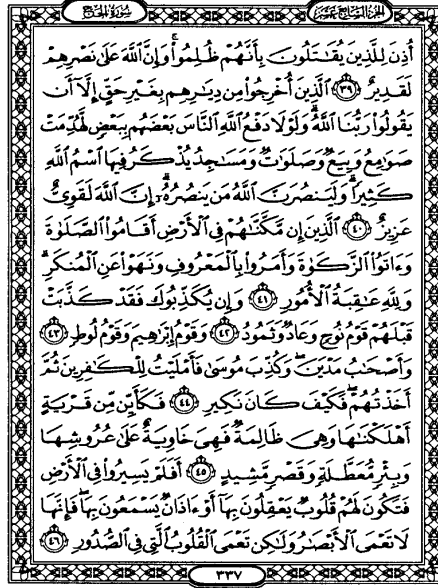 سورة الحج
الجزء السابع عشر
أُذِنَ لِلَّذِينَ يُقَٰتَلُونَ بِأَنَّهُمْ ظُلِمُوا۟ ۚ وَإِنَّ ٱللَّهَ عَلَىٰ نَصْرِهِمْ
لَقَدِيرٌ ٣٩ ٱلَّذِينَ أُخْرِجُوا۟ مِن دِيَٰرِهِم بِغَيْرِ حَقٍّ إِلَّآ أَن
يَقُولُوا۟ رَبُّنَا ٱللَّهُ ۗ وَلَوْلَا دَفْعُ ٱللَّهِ ٱلنَّاسَ بَعْضَهُم بِبَعْضٍ لَّهُدِّمَتْ
صَوَٰمِعُ وَبِيَعٌ وَصَلَوَٰتٌ وَمَسَٰجِدُ يُذْكَرُ فِيهَا ٱسْمُ ٱللَّهِ
كَثِيرًا ۗ وَلَيَنصُرَنَّ ٱللَّهُ مَن يَنصُرُهُۥٓ ۗ إِنَّ ٱللَّهَ لَقَوِىٌّ
عَزِيزٌ ٤٠ ٱلَّذِينَ إِن مَّكَّنَّٰهُمْ فِى ٱلْأَرْضِ أَقَامُوا۟ ٱلصَّلَوٰةَ
وَءَاتَوُا۟ ٱلزَّكَوٰةَ وَأَمَرُوا۟ بِٱلْمَعْرُوفِ وَنَهَوْا۟ عَنِ ٱلْمُنكَرِ ۗ
وَلِلَّهِ عَٰقِبَةُ ٱلْأُمُورِ ٤١ وَإِن يُكَذِّبُوكَ فَقَدْ كَذَّبَتْ
قَبْلَهُمْ قَوْمُ نُوحٍ وَعَادٌ وَثَمُودُ ٤٢ وَقَوْمُ إِبْرَٰهِيمَ وَقَوْمُ لُوطٍ ٤٣
وَأَصْحَٰبُ مَدْيَنَ ۖ وَكُذِّبَ مُوسَىٰ فَأَمْلَيْتُ لِلْكَٰفِرِينَ ثُمَّ
أَخَذْتُهُمْ ۖ فَكَيْفَ كَانَ نَكِيرِ ٤٤ فَكَأَيِّن مِّن قَرْيَةٍ
أَهْلَكْنَٰهَا وَهِىَ ظَالِمَةٌ فَهِىَ خَاوِيَةٌ عَلَىٰ عُرُوشِهَا
وَبِئْرٍ مُّعَطَّلَةٍ وَقَصْرٍ مَّشِيدٍ ٤٥ أَفَلَمْ يَسِيرُوا۟ فِى ٱلْأَرْضِ
فَتَكُونَ لَهُمْ قُلُوبٌ يَعْقِلُونَ بِهَآ أَوْ ءَاذَانٌ يَسْمَعُونَ بِهَا ۖ فَإِنَّهَا
لَا تَعْمَى ٱلْأَبْصَٰرُ وَلَٰكِن تَعْمَى ٱلْقُلُوبُ ٱلَّتِى فِى ٱلصُّدُورِ ٤٦
٣٣٧